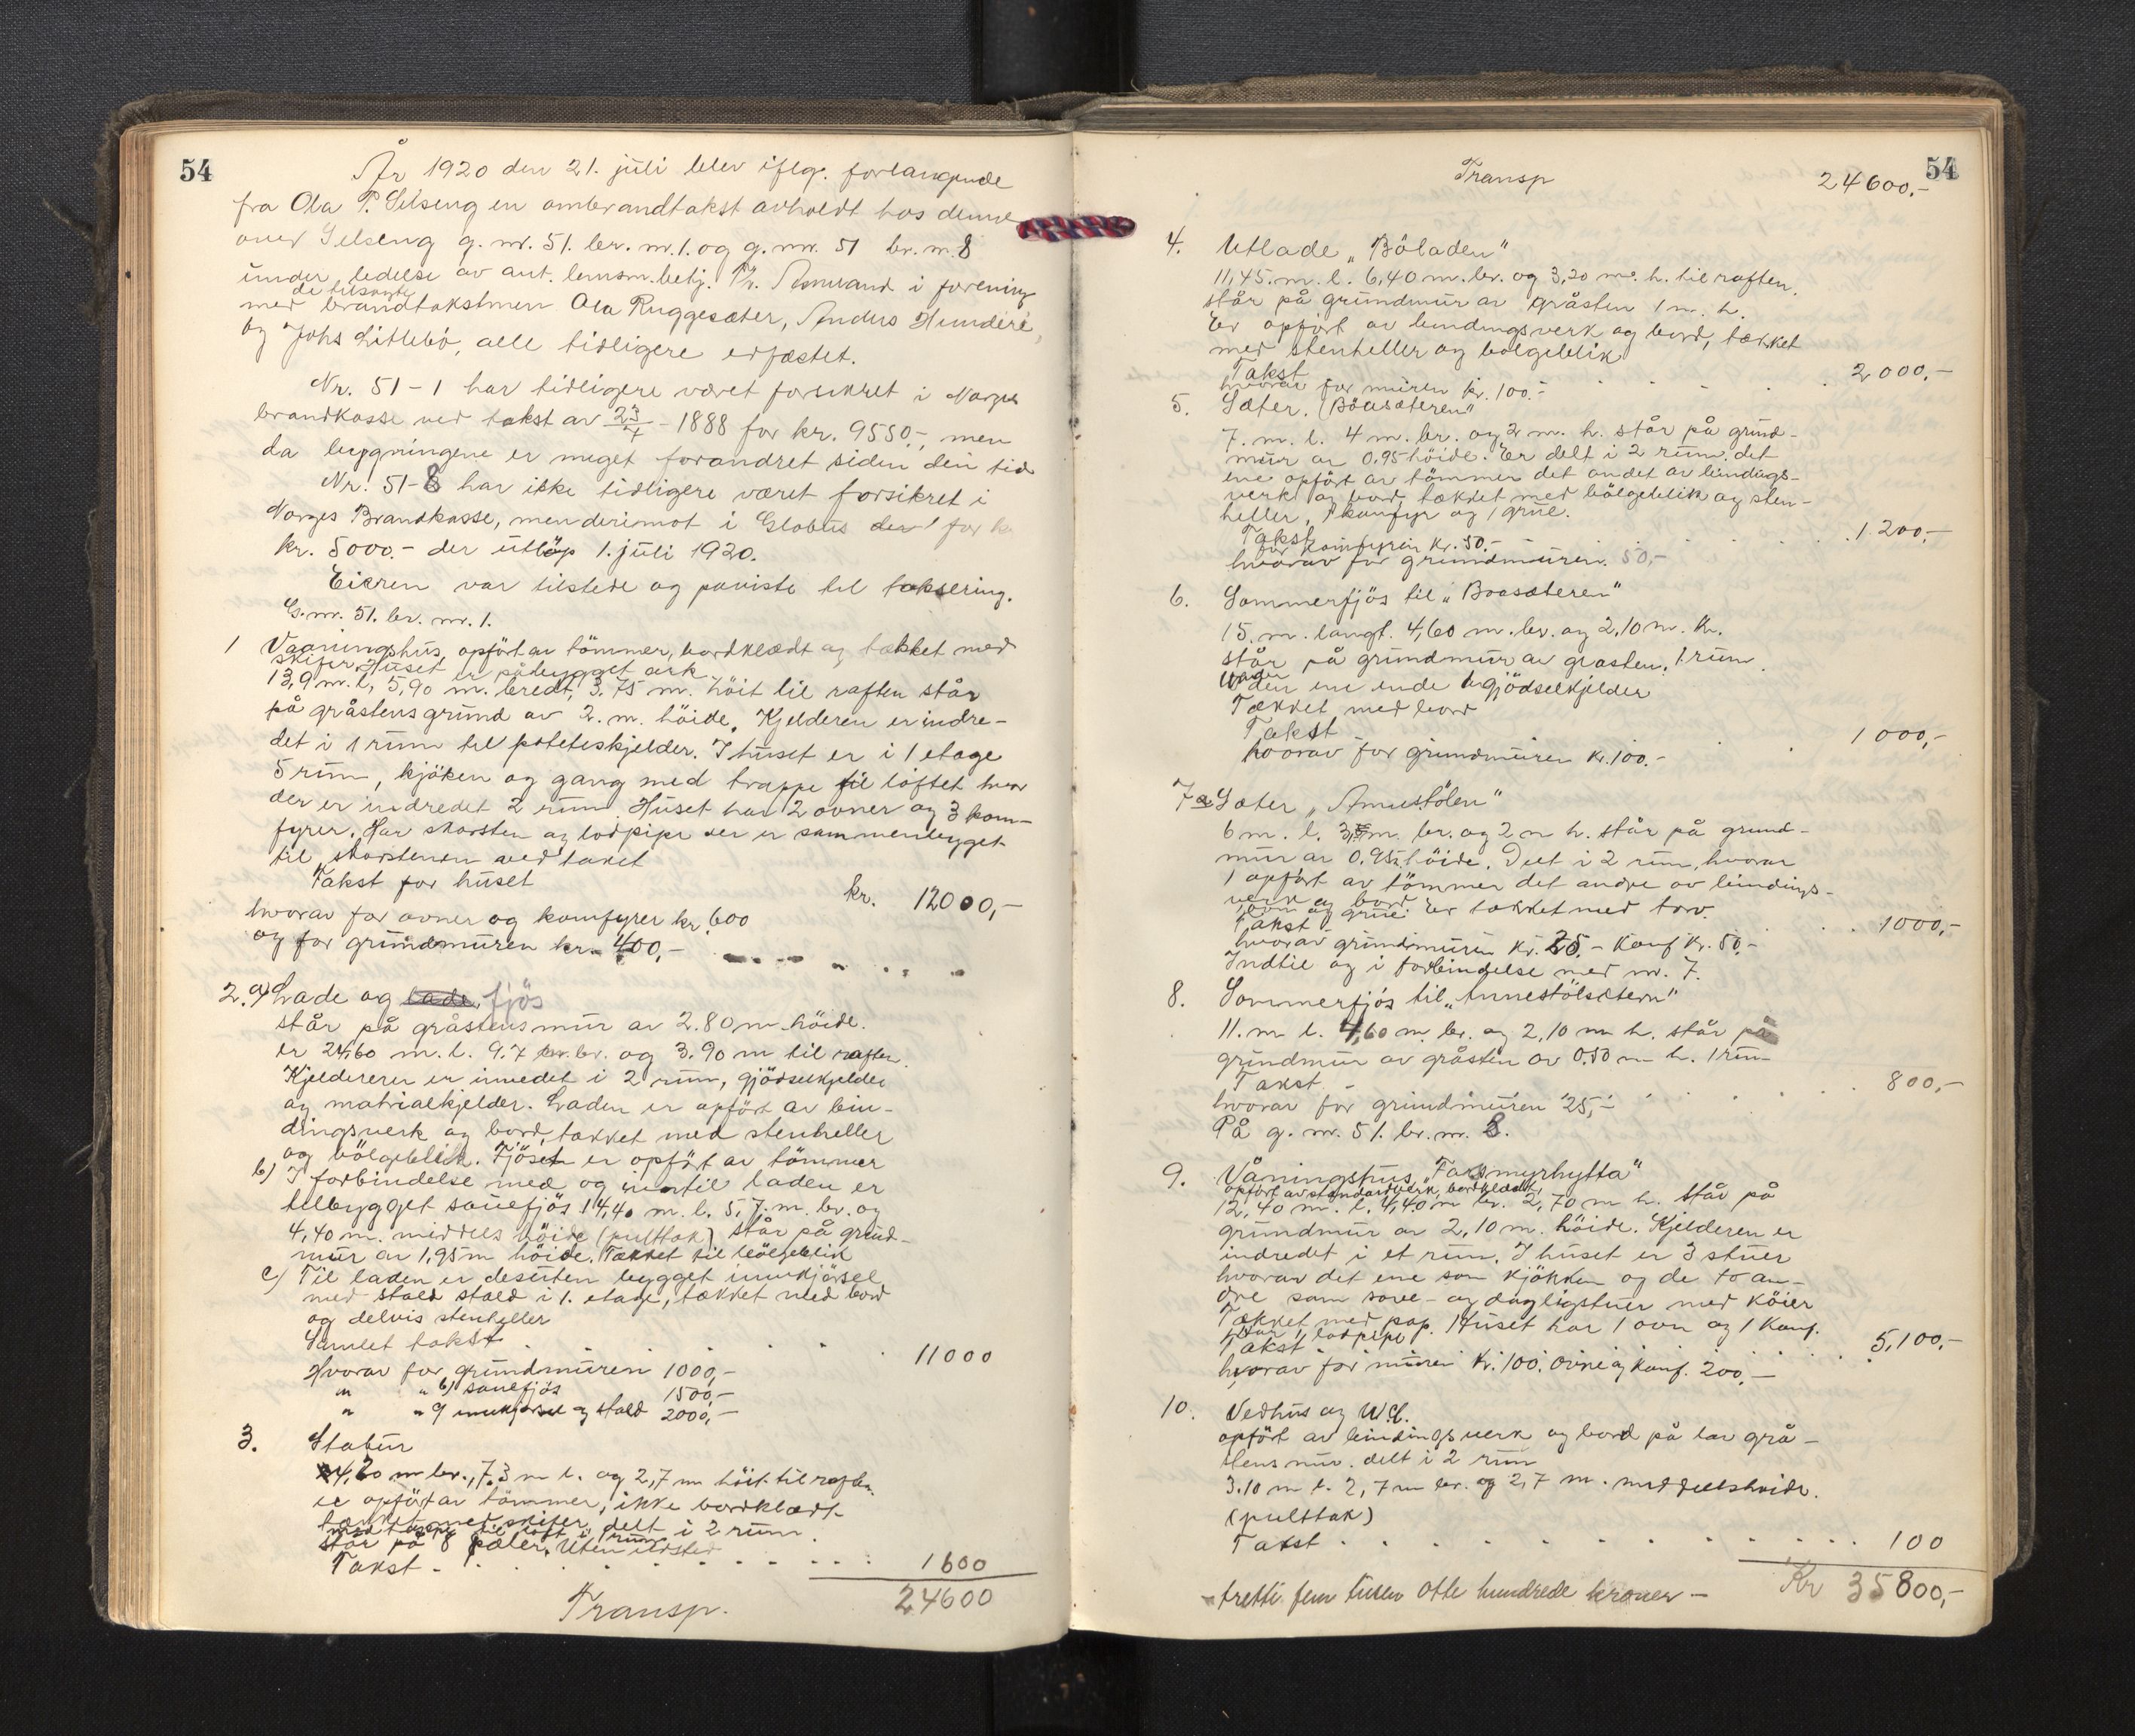 54
År 1920 den 21. juli blev iflg. forlangende
fra Ola P. Selseng en ombrandtakst avholdt hos denne
over Selseng g. nr. 51. br. nr. 1. og g. nr. 51 br. nr. 8
under ledelse av aut. lensm. betj. i forening
de tilkaldte
med brandtakstmen Ola Ruggesæter, Anders Hundere,
og Johs Litlebö, alle tidligere edfæstet.
Nr. 51-1 har tidligere været forsikret i Norges
brandkasse ved takst av 23/7 - 1888 for kr. 9550.-, men
da bygningene er meget forandret siden den tid
Nr. 51-8 har ikke tidligere været forsikret i
Norges Brandkasse, men derimot i Globus for
kr. 5000.- der utløp 1. juli 1920.
Eieren var tilstede og paviste til taksering.
G. nr. 51. br. nr. 1.
1 Vaaningshus, opført av tömmer, bordklædt og tækket med
skifer. Huset er påbygget ark.
13,9 m. l, 5,90 m. bredt, 3.75 m. höit til raften står
på gråstensgrund av 2. m. höide. Kjelderen er indre-
det i 1 rum til poteteskjelder. I huset er i 1 etage
5 rum, kjöken og gang med trappe til loftet hvor
der er indredet 2 rum. Huset har 2 ovner og 3 kom-
fyrer. Har skorsten og lodpipe der er sammenbygget
til skorstenen ved taket
Takst for huset kr. 12000,-
hvorav for ovner og komfyrer kr. 600
og for grundmuren kr. 400,-
2. a) Lade og lade, fjös
står på gråstensmur av 2.80 m höide.
er 24,60 m. l. 9.7 br. og 3.90 m til raften.
Kjeldereren er inredet i 2 rum, gjödselkjelder
og matrialkjelder. Laden er opfört av bin-
dingsverk og bord, tækket med stenheller
og bölgeblik. Fjöset er opfört av tömmer
b) I forbindelse med og inntil laden er
tilbygget sauefjös 14,40 m. l. 5,7. m. br. og
4,40 m. middels höide (pulttak) står på grund-
mur av 1,95 m höide. Tækket til bölgeblik
c) Til laden er desuten bygget innkjörsel
med stald stald i 1. etage, tækket med bord
og delvis stenheller
Samlet takst 11000
Hvorav for grundmuren 1000,-
" " b) sauefjös 1500,-
" " c) innkjörsel og stald 2000,-
3. Stabur
4,20 m br., 7.3 m l. og 2,7 m höit til raften
er opfört av tömmer, ikke bordklædt
tækket med skifer, delt i 2 rum
med trappe til loft i 1 rum
står på 8 pæler. Uten ildsted
Takst 1600
24600
Transp.
54
Transp 24600.-
4. Utlade „Böladen"
11,45. m. l. 6,40 m. br. og 3,20 m. h. til raften.
står på grundmur av gråsten 1 m. h.
Er opfört av bindingsverk og bord, tækket
med stenheller og bölgeblik
Takst 2000,-
hvorav for muren kr. 100.-
5. Sæter. (Böasæteren"
7. m. l. 4 m. br. og 2 m. h. står på grund-
mur av 0.95 höide. Er delt i 2 rum, det
ene opfört av tömmer det andet av bindings-
verk og bord, tækket med bölgeblik og sten-
heller, 1 komfyr og 1 grue.
Takst 1200,-
for komfyren kr. 50.-
hvorav for grundmuren. 50,-
6. Sommerfjös til „Boasæteren"
15. m. langt. 4,60 m. br. og 2,10 m. h.
står på grundmur av grasten. 1 rum.
Under
den ene ende gjödselkjelder
Tækket med bord
Takst 1000,-
hvorav for grundmuren kr. 100.-
7 a Sæter „Amustölen"
6 m. l. br. og 2 m h. står på grund-
mur av 0.95 höide. Delt i 2 rum, hvorav
1 opfört av tömmer det andre av bindings-
verk og bord
1 ovn og grue. Er tækket med torv.
Takst 1000,-
hvorav grundmuren kr. 25.- Komf kr. 50.-
Indtil og i forbindelse med nr. 7.
8. Sommerfjös til „Annestölsætern"
11. m l. 4,60 m. br. og 2,10 m h. står på
grundmur av gråsten av 0.50 m h. 1 rum
Takst 800,-
hvorav for grundmuren 25,-
På g. nr. 51. br. nr. 8.
9. Våningshus „Faksmyrhytta"
opfört av standardverk, bordklædt,
12,40 m. l. 4,40 m br. 2,70 m h. står på
grundmur av 2,10 m. höide. Kjelderen er
indredet i et rum. I huset er 3 stuer
hvorav det ene som kjökken og de to an-
dre som sove- og dagligstuer med köier
Tækket med pap. Huset har 1 ovn og 1 Komf.
Har 1 lodpipe
Takst 5,100,-
hvorav for muren kr. 100. ovne og komf. 200,-
10. Vedhus og W.C.
opfört av bindingsverk og bord på lav grå-
stensmur. delt i 2 rum
3.10 m l. 2,7 m br. og 2,7 m. middelshöide.
(pulttak)
Takst 100
tretti fem tusen otte hundrede kroner - Kr 35800,-